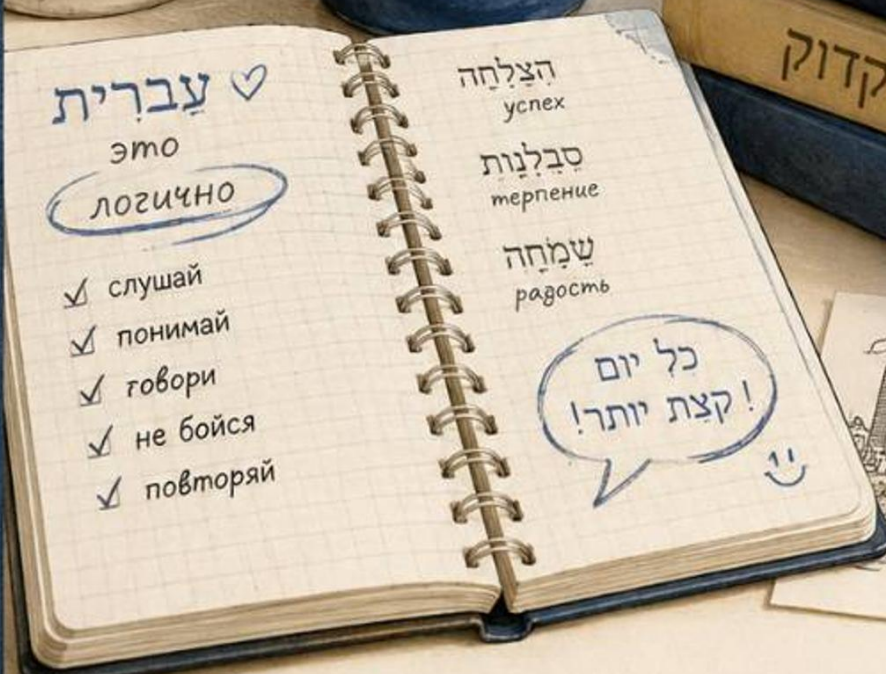 עִבְרִית ♡
это
логично
✓ слушай
✓ понимай
✓ говори
✓ не бойся
✓ повторяй
הַצְלָחָה
успех
סַבְלָנוּת
терпение
שִׂמְחָה
радость
כל יום
קצת יותר!!
קדוק